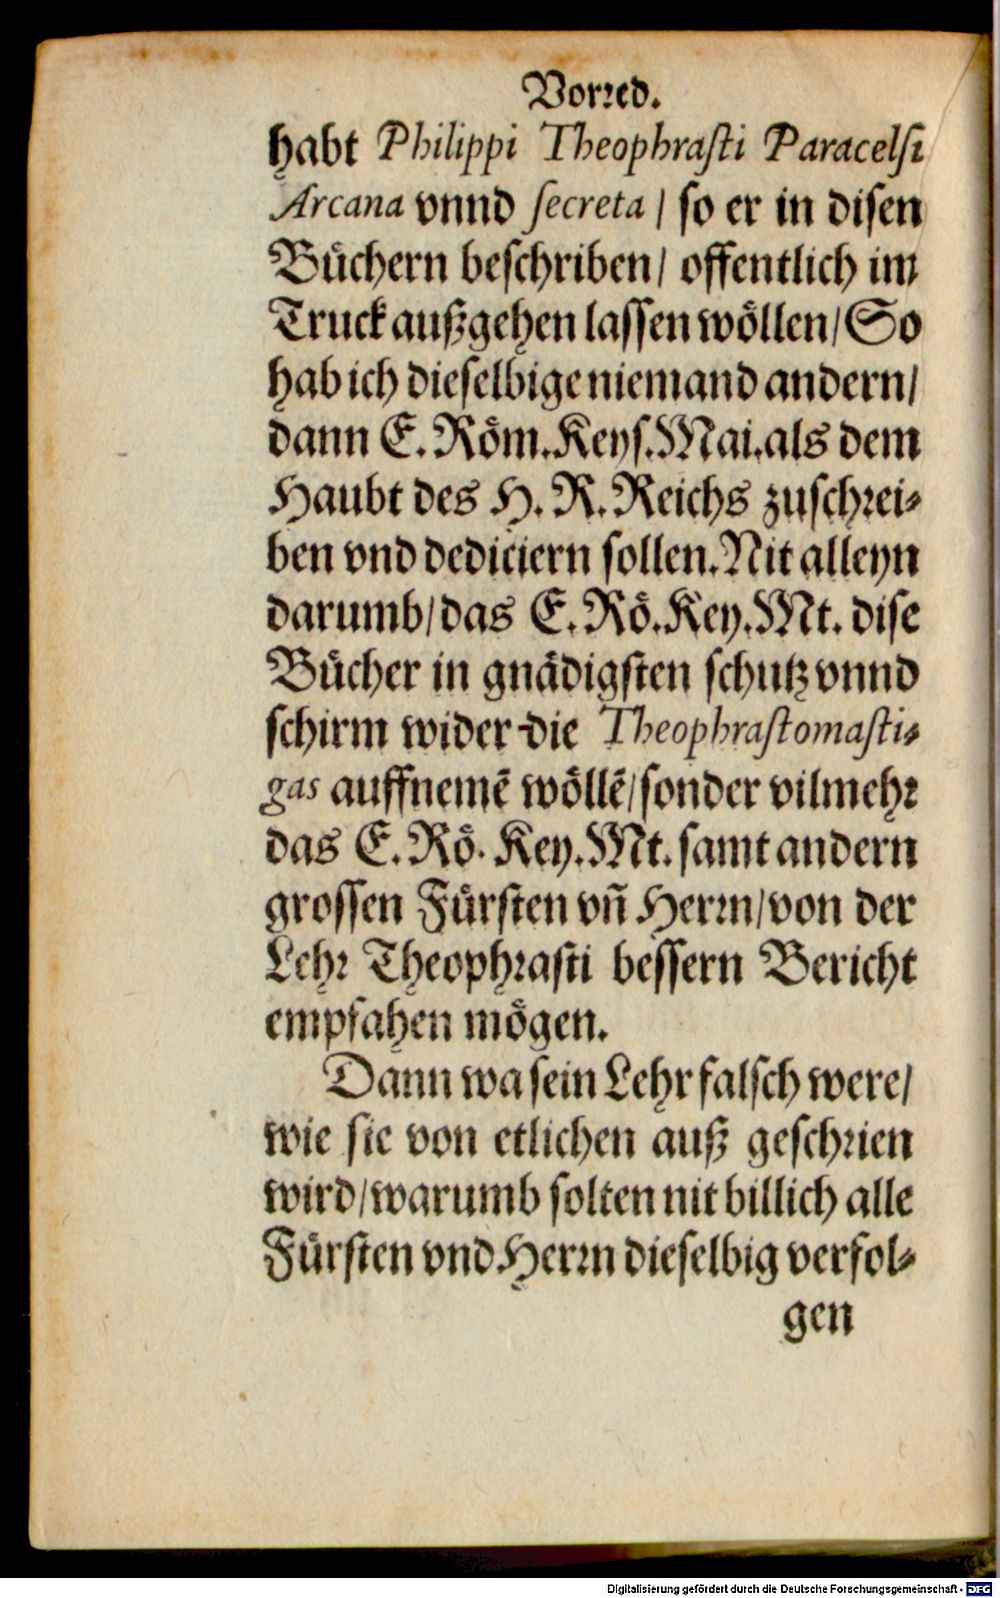 Vorred.
habt Philippi Theophraſti Paracelſi
Arcana vnnd ſecreta / ſo er in diſen
Buͤchern beſchriben / offentlich im
Truck außgehen laſſen woͤllen / So
hab ich dieſelbige niemand andern /
dann E. Roͤm. Keyſ. Mai. als dem
Haubt des H. R. Reichs zuſchrei⸗
ben vnd dediciern ſollen. Nit alleyn
darumb / das E. Roͤ. Key. Mt. diſe
Buͤcher in gnaͤdigſten ſchutz vnnd
ſchirm wider die Theophraſtomaſti⸗
gas auffnemē woͤllē / ſonder vilmehr
das E. Roͤ. Key. Mt. ſamt andern
groſſen Fuͤrſten vn̄ Herrn / von der
Lehr Theophraſti beſſern Bericht
empfahen moͤgen.
Dann wa ſein Lehr falſch were /
wie ſie von etlichen auß geſchrien
wird / warumb ſolten nit billich alle
Fuͤrſten vnd Herrn dieſelbig verfol⸗
gen
Digitalisierung gefördert durch die Deutsche Forschungsgemeinschaft - DFG